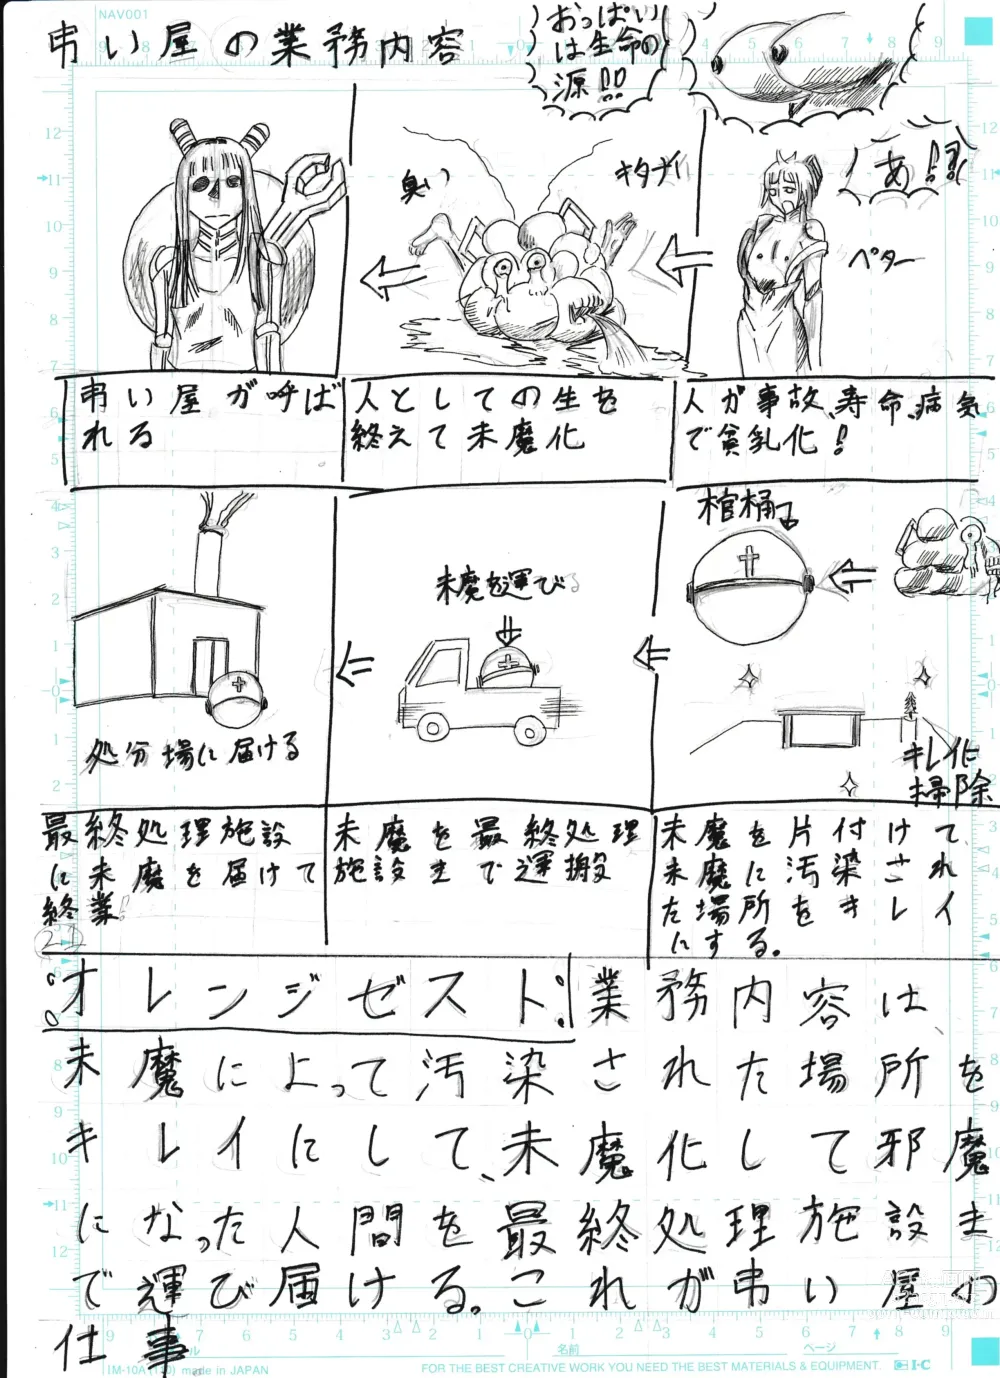 NAV001
弔い屋の業務内容
おっぱい
は生命の
源!!
あ!?!
ペター
キタナイ
臭い
人が事故、寿命、病気
で貧乳化!
人としての生を
終えて未魔化
弔い屋が呼ば
れる
棺桶
キレイに
掃除
未魔を運びる
処分場に届ける
未魔を片付けて
未魔に汚染され
た場所をキレイ
にする。
未魔を最終処理
施設まで運搬
最終処理施設
に未魔を届けて
終業!
21
オレンジゼスト
業務内容は、
未魔によって汚染された場所を
キレイにして、未魔化して邪魔
になった人間を最終処理施設ま
で運び届ける。これが弔い屋の
仕事
名前
ページ
IM-10A(110) made in JAPAN
FOR THE BEST CREATIVE WORK YOU NEED THE BEST MATERIALS & EQUIPMENT.
I-C